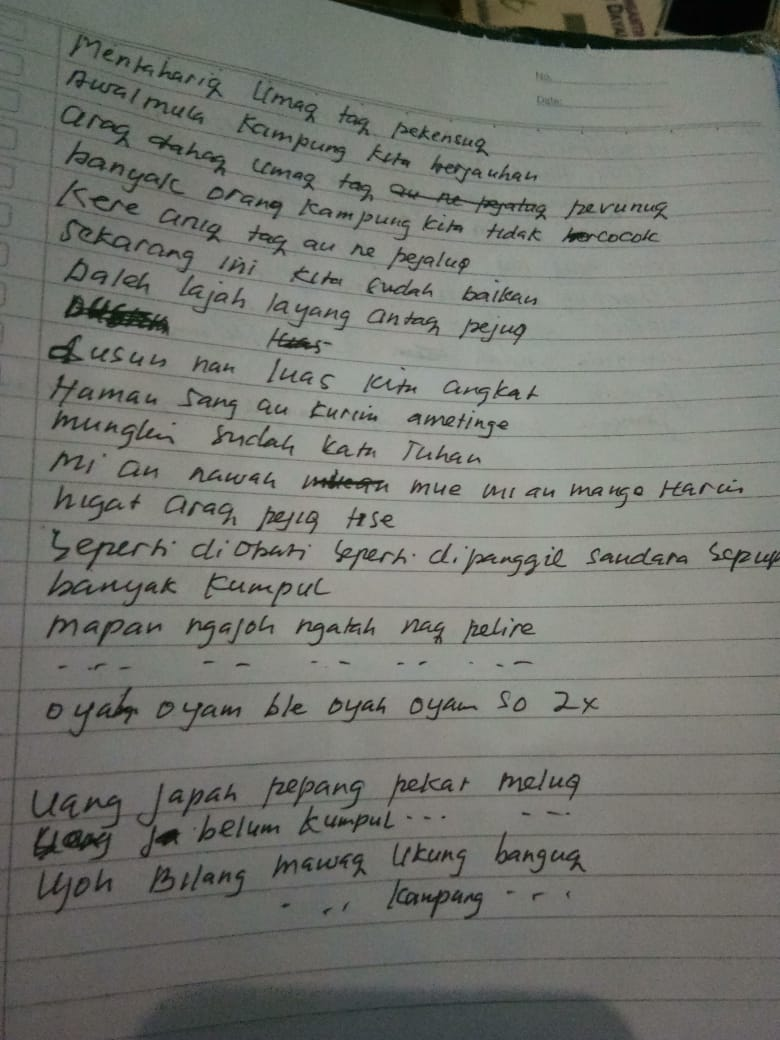 No.
Date:
Mentahariq Umaq taq pekensuq
Awal mula kampung kita berjauhan
araq dahaq umaq taq au ne pejataq pevunuq
banyak orang kampung kita tidak bercocok
Kere aniq taq au ne pejaluq
Sekarang ini kita sudah baikan
Daleh lajah layang antaq pejuq
Luas
dusun nan luas kita angkat
Haman sang au kurin ametinge
mungkin sudah kata Tuhan
mi an nawan mue mi au mango Harin
higat araq pejiq tise
Seperti diobati seperti dipanggil saudara
banyak kumpul
mapan ngajoh ngatah naq pelire
oyah oyam ble oyah oyam so 2x
Uang Japah pepang pekar meluq
belum kumpul ...
Ujoh Bilang mawaq Ukung banguq
Kampung